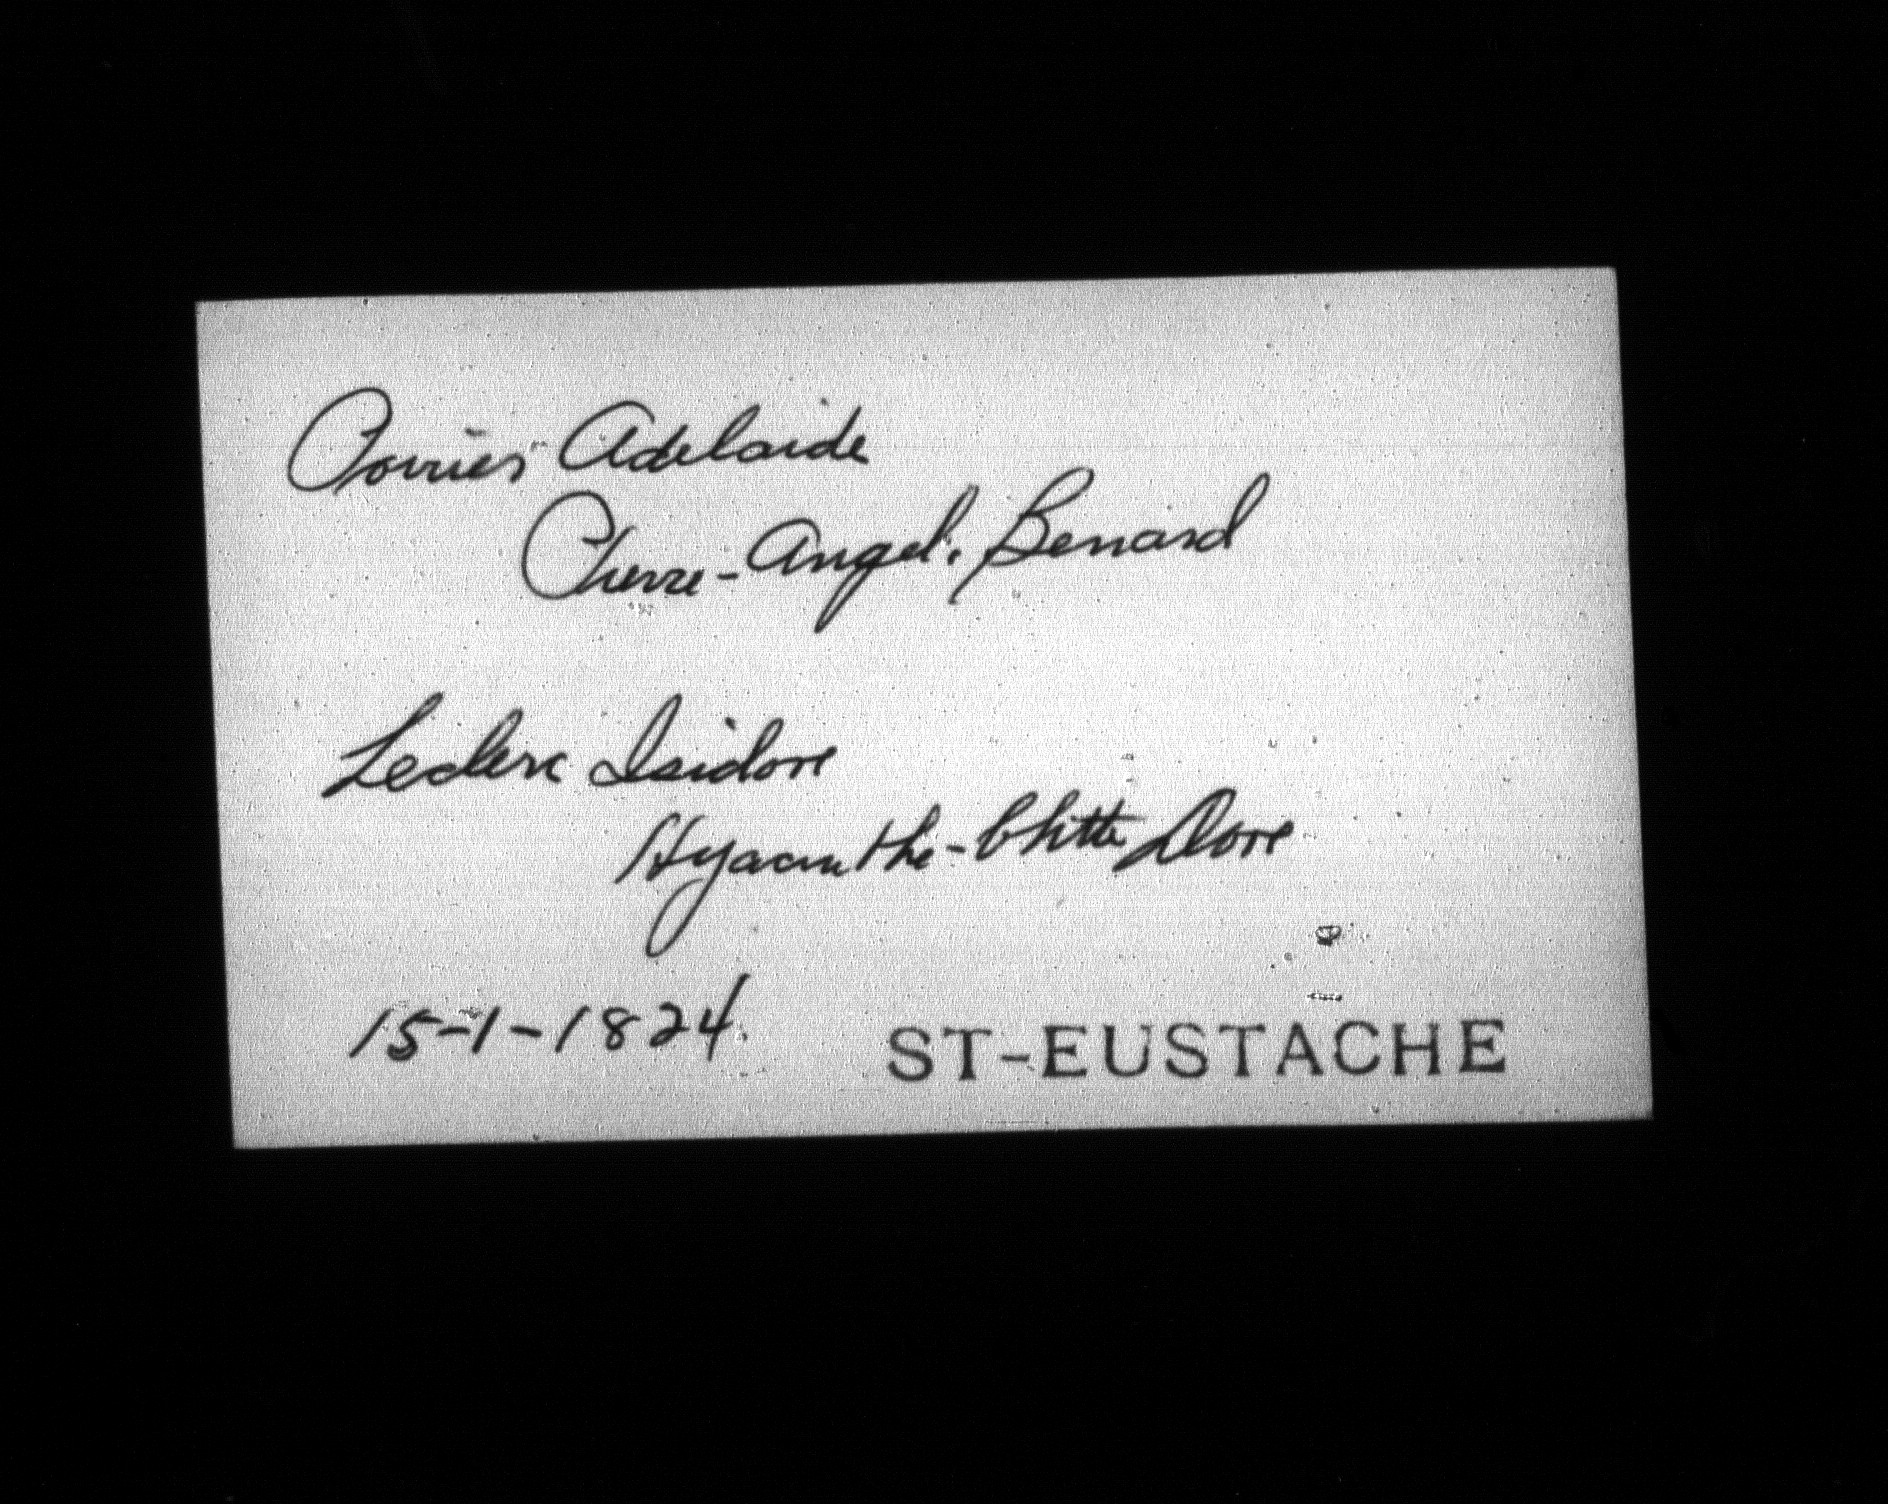 Poirier Adelaide
Pierre-Angel. Benard
Leclerc Isidore
Hyacinthe-Chitte Dore
15-1-1824.
ST-EUSTACHE